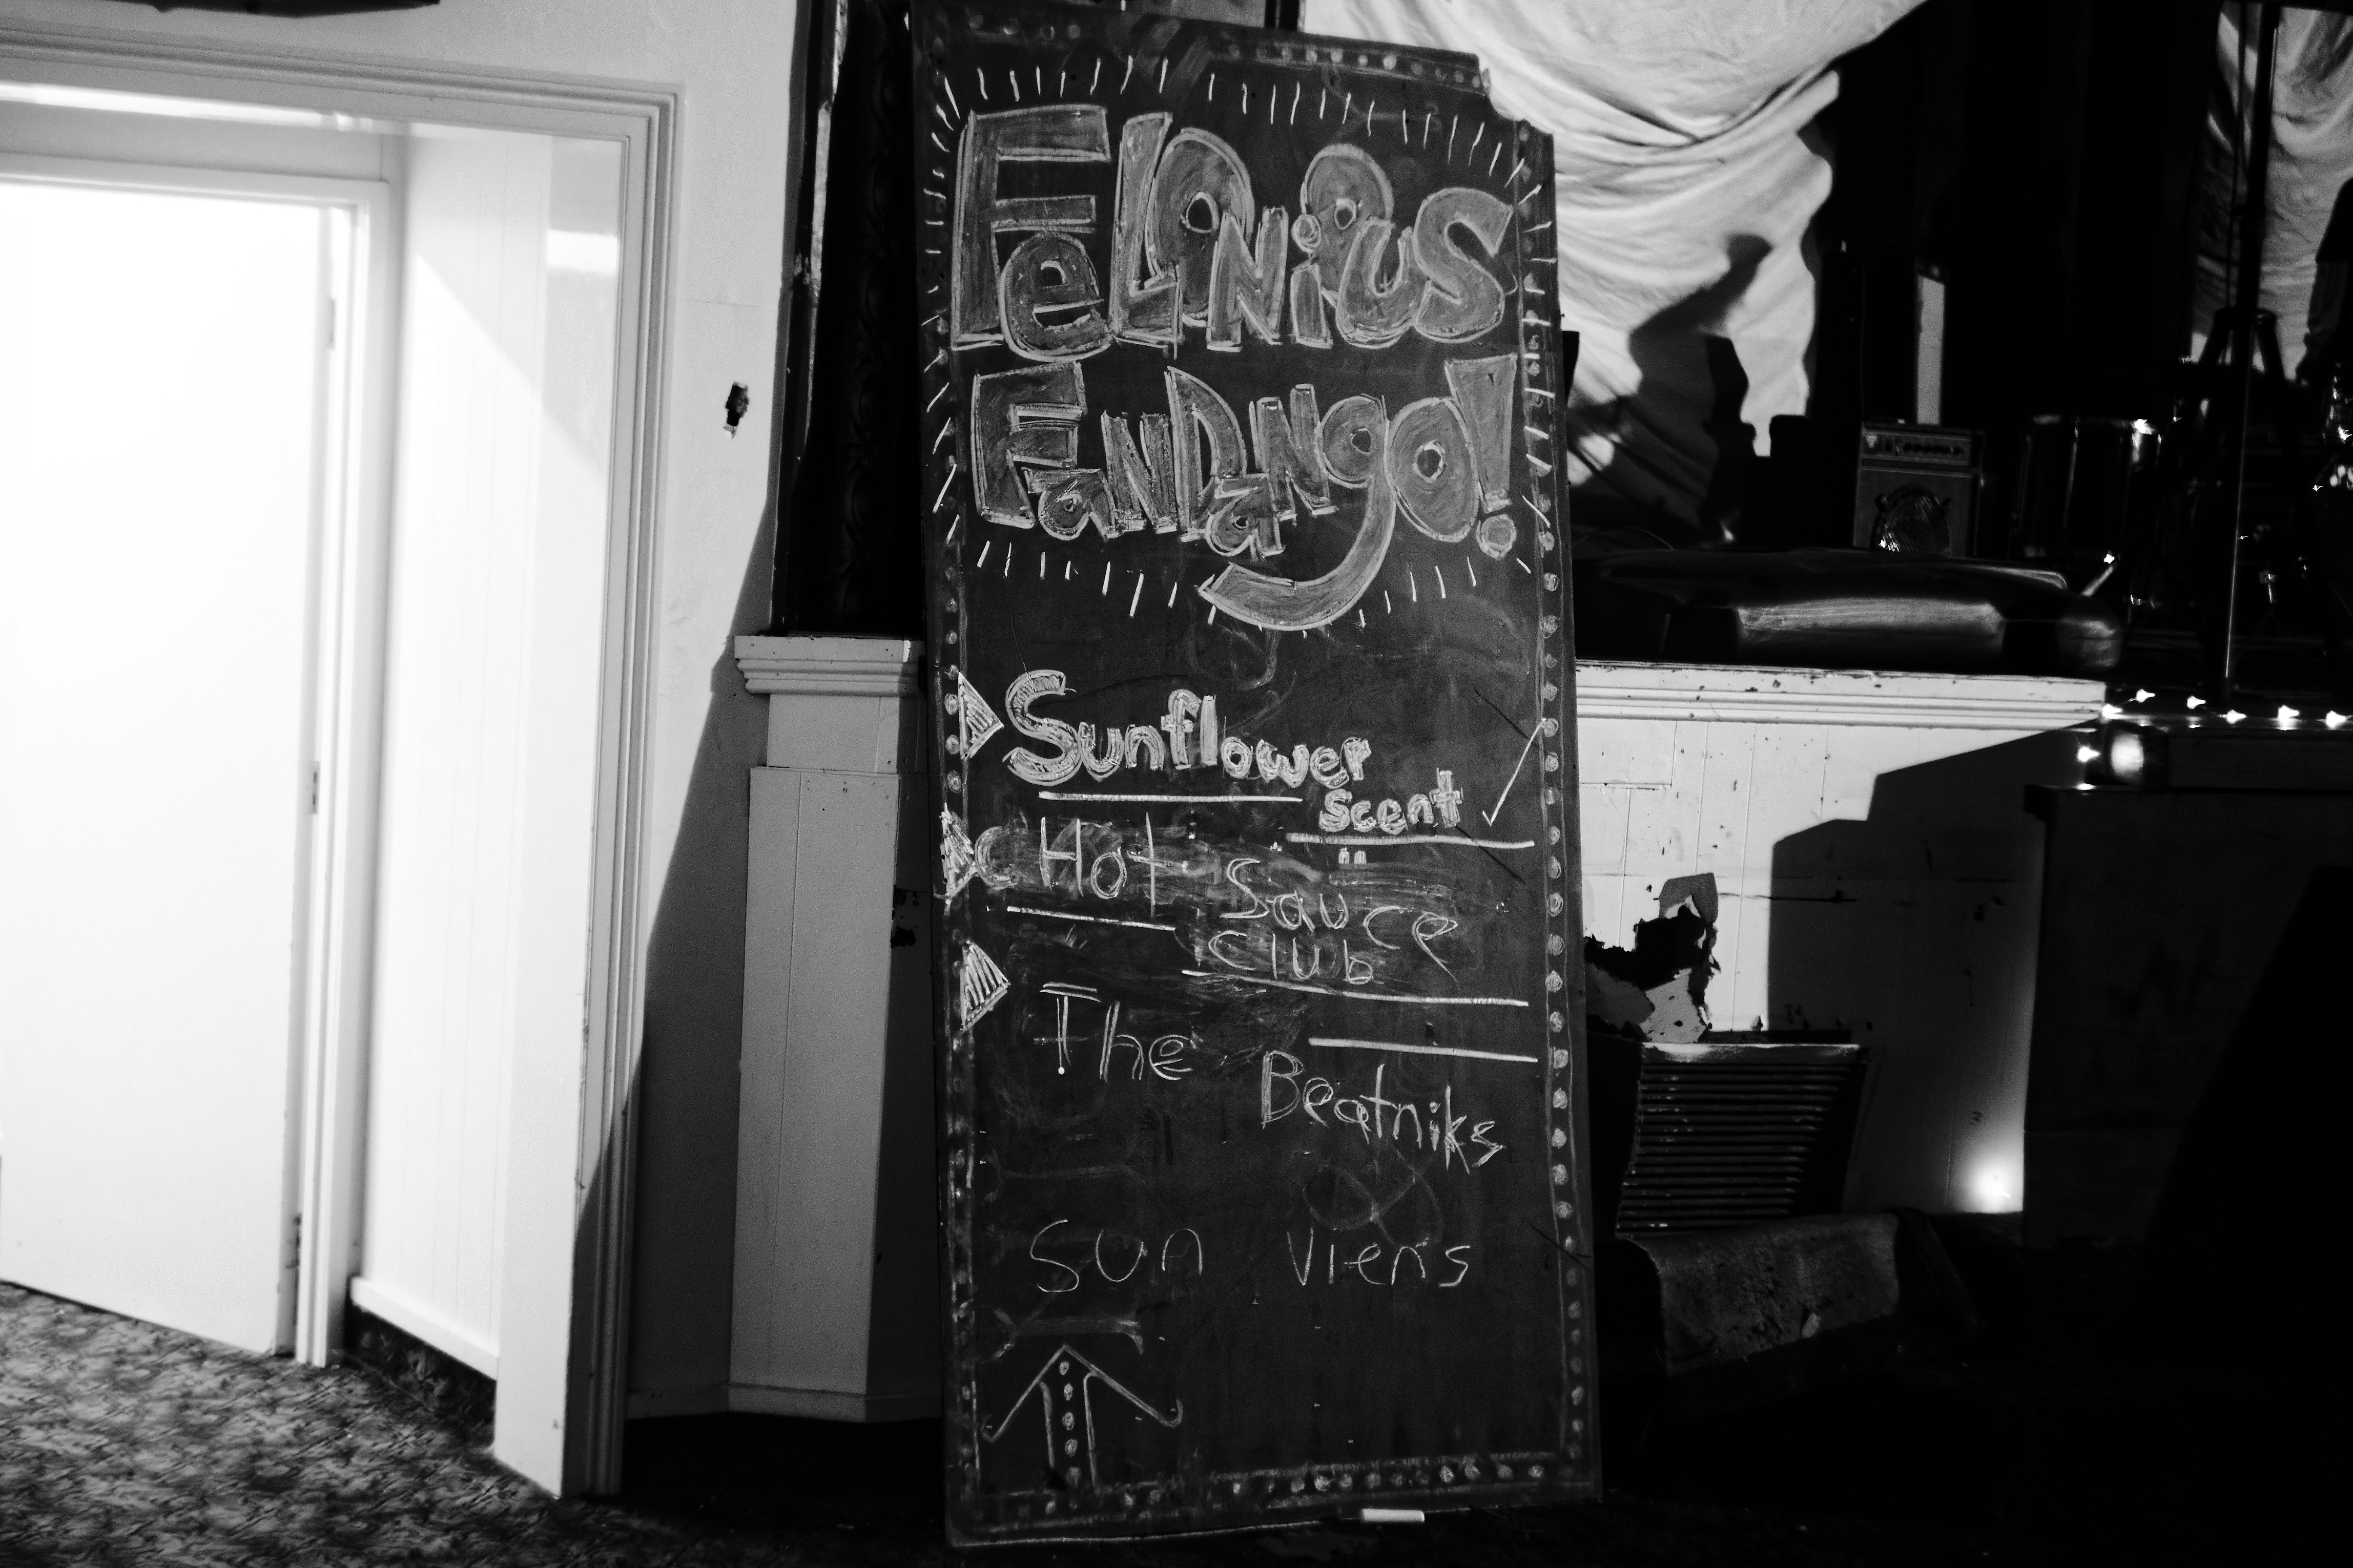 FeLoNiouS
FanDaNgo!
Sunflower
scent
Hot Sauce
Club
The Beatniks
Sun Viers